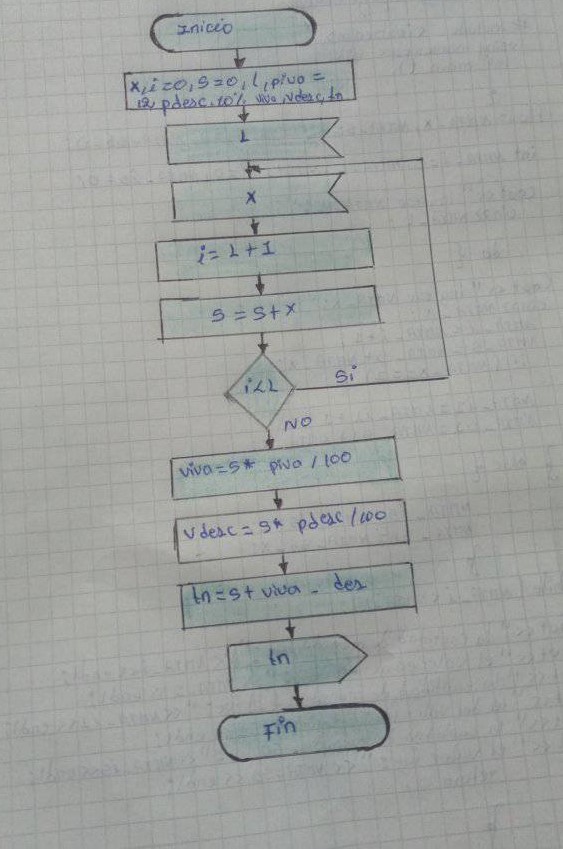 Inicio
x, i=0, S=0, l, piva=
12, pdesc, 10%, viva, vdesc, tn
L
x
i = L + 1
S = S + x
i < L
Si
NO
viva = S * piva / 100
Vdesc = S * pdesc / 100
tn = S + viva - des
tn
Fin